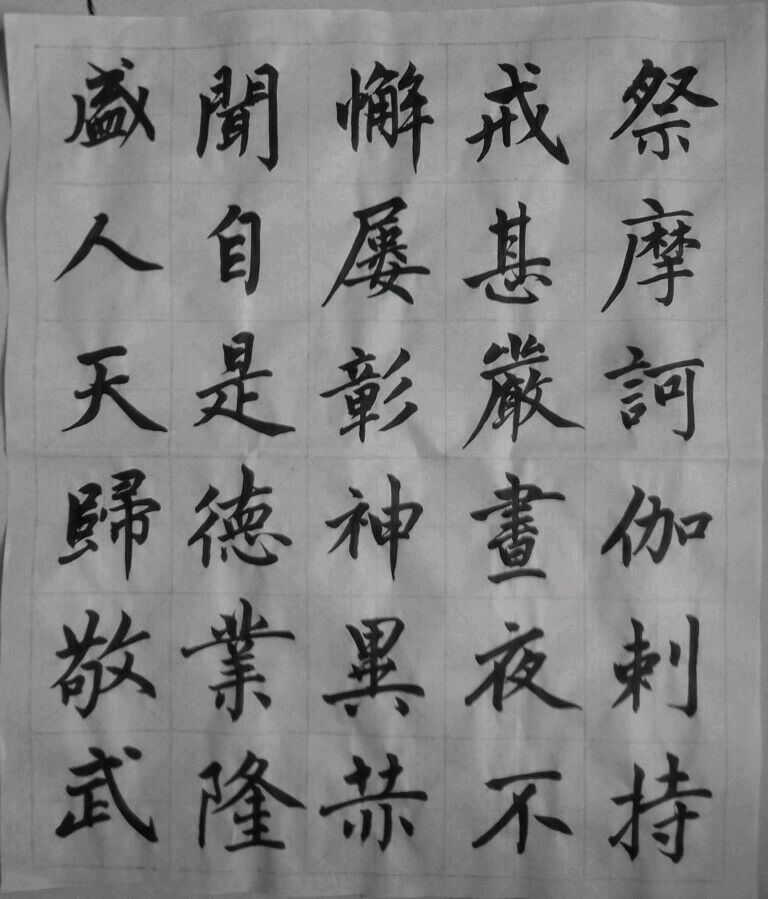 祭摩訶伽剌持
戒甚嚴晝夜不
懈屢彰神異赫
聞自是德業隆
盛人天歸敬武